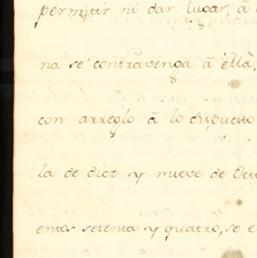 permitir ni dar lugar, à
na se contravenga à ella,
con arreglo à lo dispuesto
la de diez y nueve de
entos setenta y quatro, se